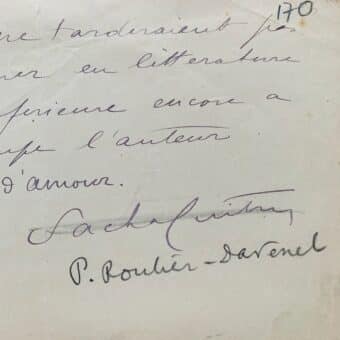 170
tarderaient pas
en littérature
encore a
l'auteur
d'amour.
Sacha Guitry
P. Roulier-Davenel